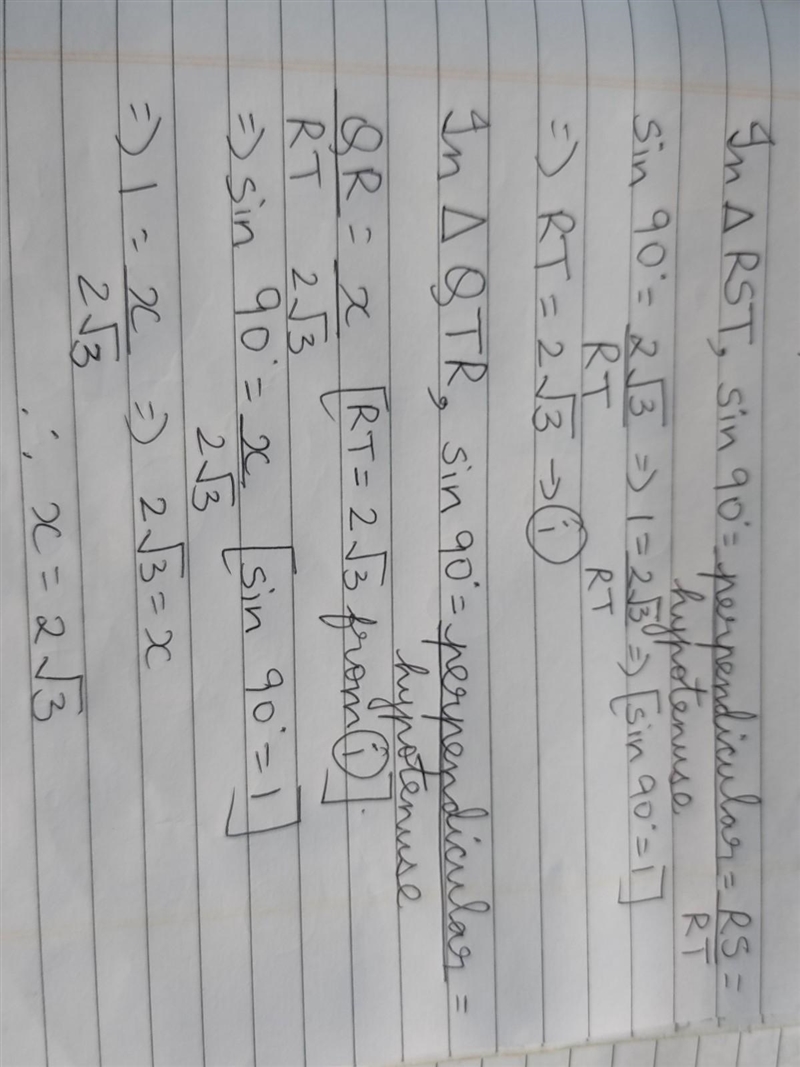 In Δ RST, sin 90° = perpendicular/hypotenuse = RS/RT =
sin 90° = 2√3/RT => 1 = 2√3/RT => [sin 90° = 1]
=> RT = 2√3 → (i)
In Δ QTR, sin 90° = perpendicular/hypotenuse =
QR/RT = x/2√3 [RT = 2√3 from (i)].
=> sin 90° = x/2√3 [sin 90° = 1]
=> 1 = x/2√3 => 2√3 = x
∴ x = 2√3